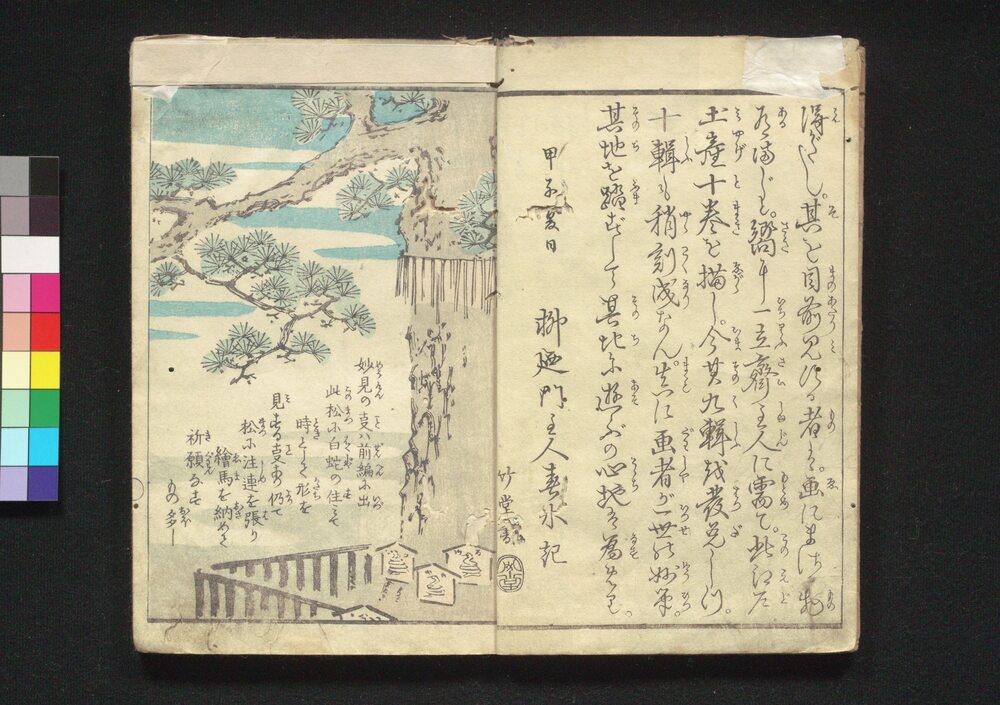 得がたし。其を目前見る者は画にます物
あるまじき。嚮に一立齋主人に需て。此江戸
土産十巻を描し。今其九輯を發兌しつ。
十輯も稍刻成なん。実に画者が一世の妙筆。
其地を踏ずして其地に遊ぶの心地を為せり。
甲子夏日
柳廼門主人春水記
竹堂書
妙見の支ハ前編に出
此松に白蛇の住て
時として形を
見する支あり仍て
松に注連を張り
繪馬を納めて
祈願なす
もの多し